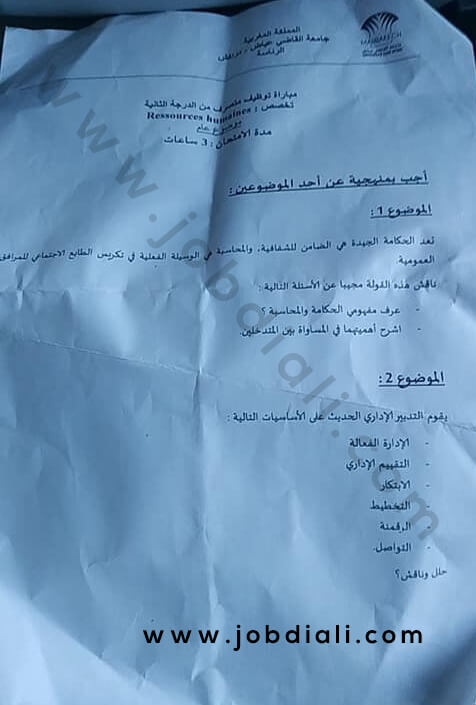 المملكة المغربية
جامعة القاضي عياض - مراكش
الرئاسة
مباراة توظيف متصرف من الدرجة الثانية
تخصص : Ressources humaines
موضوع عام
مدة الامتحان : 3 ساعات
أجب بمنهجية عن أحد الموضوعين :
الموضوع 1 :
تعد الحكامة الجيدة هي الضامن للشفافية، والمحاسبة هي الوسيلة الفعلية في تكريس الطابع الاجتماعي للمرافق
العمومية.
ناقش هذه القولة مجيبا عن الأسئلة التالية :
- عرف مفهومي الحكامة والمحاسبة ؟
- اشرح أهميتهما في المساواة بين المتدخلين.
الموضوع 2 :
يقوم التدبير الإداري الحديث على الأساسيات التالية :
- الإدارة الفعالة
- التقييم الإداري
- الابتكار
- التخطيط
- الرقمنة
- التواصل.
حلل وناقش؟
www.jobdiali.com
www.jobdiali.com